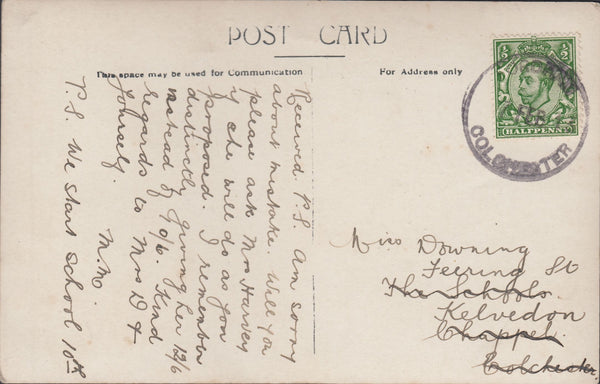 POST CARD
This space may be used for Communication
For Address only
Received P.S. Am sorry
about mistake. Will you
please ask Mrs Harvey
if she will do as you
proposed. I remember
distinctly giving her 12/6
instead of 10/6. Kind
regards to Mrs D &
yourself.
M.M.
P.S. We start School 10th
½ ½
HALFPENNY
COLCHESTER
Miss Downing
Feering St
The Schools.
Kelvedon
Chappel.
Colchester.